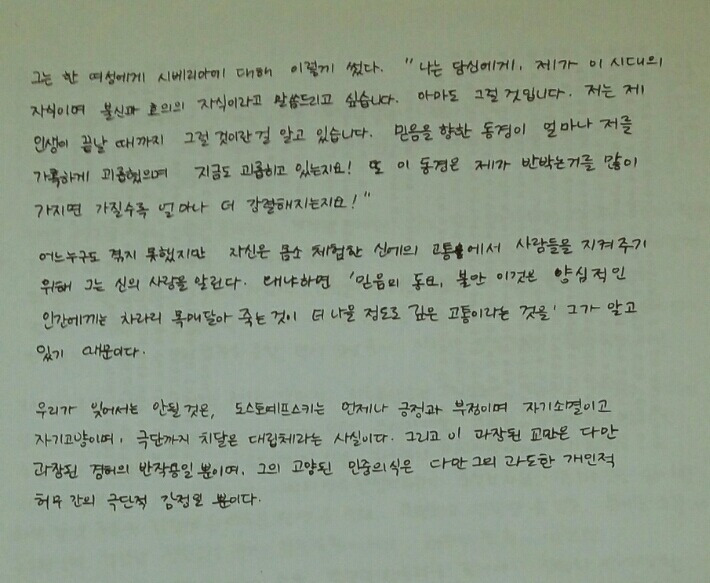 그는 한 여성에게 시베리아에 대해 이렇게 썼다. "나는 당신에게, 제가 이 시대의
자식이며 불신과 회의의 자식이라고 말씀드리고 싶습니다. 아마도 그럴 것입니다. 저는 제
인생이 끝날 때까지 그럴 것이란 걸 알고 있습니다. 믿음을 향한 동경이 얼마나 저를
가혹하게 괴롭혔으며 지금도 괴롭히고 있는지요! 또 이 동경은 제가 반박논거를 많이
가지면 가질수록 얼마나 더 강렬해지는지요!"
어느누구도 겪지 못했지만 자신은 몸소 체험한 신에의 고통에서 사람들을 지켜주기
위해 그는 신의 사랑을 알린다. 왜냐하면 '믿음의 동요, 불안 이것은 양심적인
인간에게는 차라리 목매달아 죽는 것이 더 나을 정도로 깊은 고통이라는 것을' 그가 알고
있기 때문이다.
우리가 잊어서는 안될 것은, 도스토예프스키는 언제나 긍정과 부정이며 자기소멸이고
자기고양이며, 극단까지 치달은 대립체라는 사실이다. 그리고 이 과장된 교만은 다만
과장된 겸허의 반작용일 뿐이며, 그의 고양된 민중의식은 다만 그의 과도한 개인적
허무 간의 극단적 감정일 뿐이다.